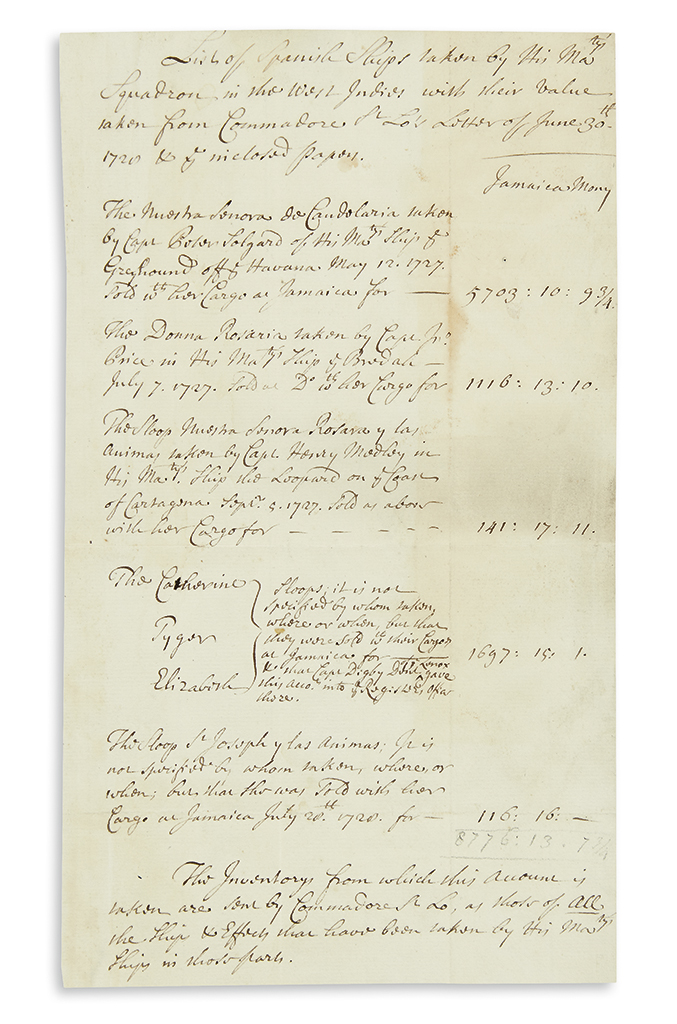 List of Spanish Ships taken by His Ma^tys
Squadron in the West Indies with their Value
taken from Commodore S^t Lo's Letter of June 30^th
1728 & y^e inclosed Papers.
Jamaica Mony
The Nuestra Senora de Candelaria taken
by Capt Peter Solgard of His Ma^tys Ship y^e
Greyhound off y^e Havana May 12. 1727.
Sold w^th her Cargo at Jamaica for — 5703: 10: 9 3/4
The Donna Rosaria taken by Capt Jn^o
Price in His Ma^tys Ship y^e Bredah —
July 7. 1727. Sold at D^o w^th her Cargo for 1116: 13: 10.
The Sloop Nuestra Senora Rosara y las
Animas taken by Capt. Henry Medley in
His Ma^tys. Ship the Leopard on y^e Coast
of Cartagena Sept^r. 5. 1727. Sold as above
with her Cargo for — — — — 141: 17: 11.
The Catherine
Tyger
Elizabeth
Sloops; it is not
specified by whom taken,
where or when, but that
they were Sold w^th their Cargos
at Jamaica for 1697: 15: 1.
& that Capt Digby Dent gave
this Acco^t. into y^e Registers Office
there.
The Sloop S^t Joseph y las Animas; It is
not specified by whom taken, where, or
when; but that she was Sold with her
Cargo at Jamaica July 20.^th 1728. for — 116: 16: —
8776: 13. 7 3/4
The Inventorys from which this Account is
taken are sent by Commodore S^t Lo, as those of All
the Ships & Effects that have been taken by His Ma^tys
Ships in those parts.